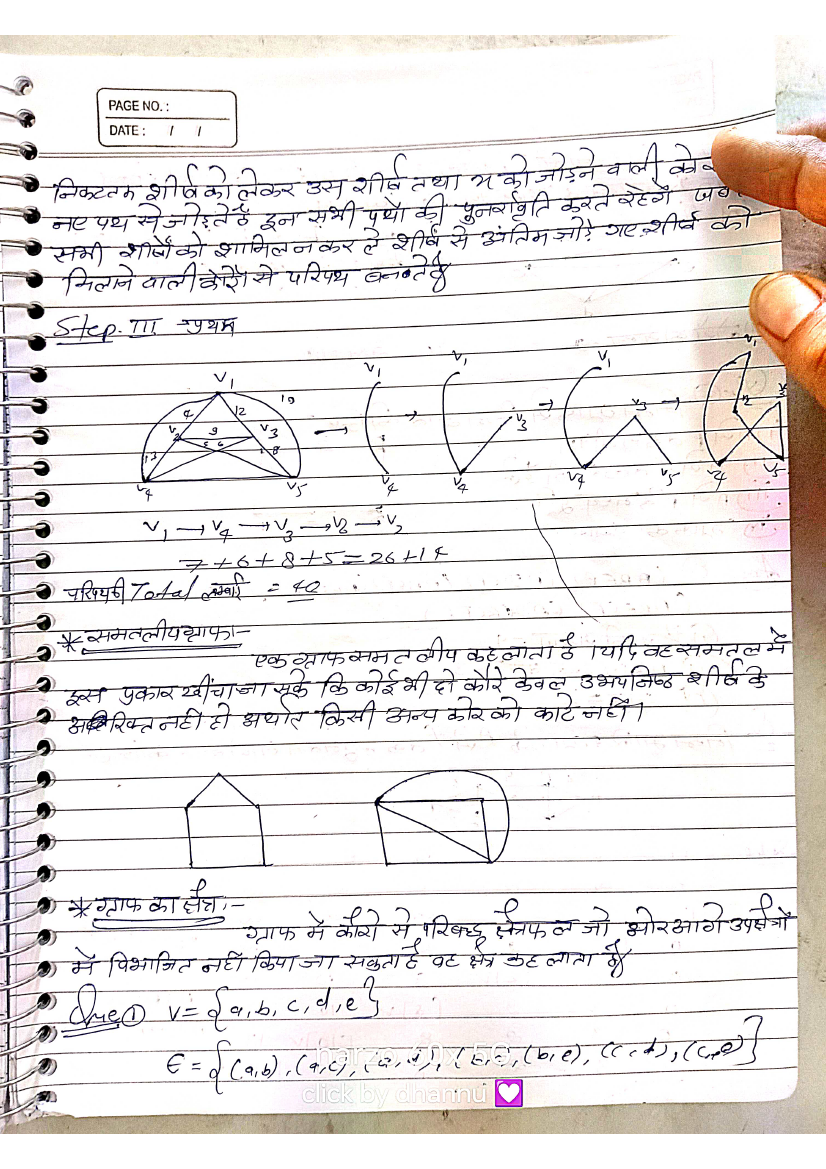 PAGE NO. :
DATE : / /
निकटतम शीर्ष को लेकर उस शीर्ष तथा x को जोड़ने वाली कोर
नए पथ से जोड़ते हैं इन सभी पथों की पुनरावृति करते रहेगें जब
सभी शीर्षों को शामिल न कर ले शीर्ष से अंतिम जोड़े गए शीर्ष को
मिलाने वाली कोरों से परिपथ बनाते है
Step. III → प्रथम
V1 → V4 → V3 → V5 → V2
7+6+8+5=26+14
परिपथ की Total लम्बाई = 40
* समतलीय ग्राफ :-
एक ग्राफ समतलीय कहलाता है । यदि वह समतल में
इस प्रकार खींचा जा सके कि कोई भी दो कोरे केवल उभयनिष्ठ शीर्ष के
अतिरिक्त नहीं हो अर्थात किसी अन्य कोर को काटे नहीं ।
* ग्राफ का क्षेत्र :-
ग्राफ में कोरो से परिबद्ध क्षेत्रफल जो ओर आगे उपक्षेत्रों
में विभाजित नहीं किया जा सकता है वह क्षेत्र कहलाता है
Que ① V = {a, b, c, d, e}
E = {(a,b), (a,c), (a,d), (b,e), (c,d), (c,e)}
click by dhannu